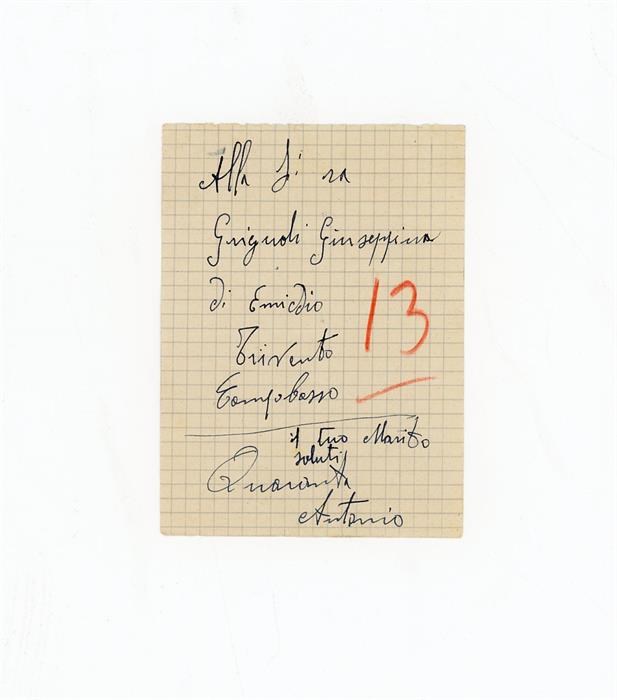 Alla Si ra
Grignoli Giuseppina
di Emidio
13
Trivento
Campobasso
il tuo Marito
saluti
Quaranta
Antonio